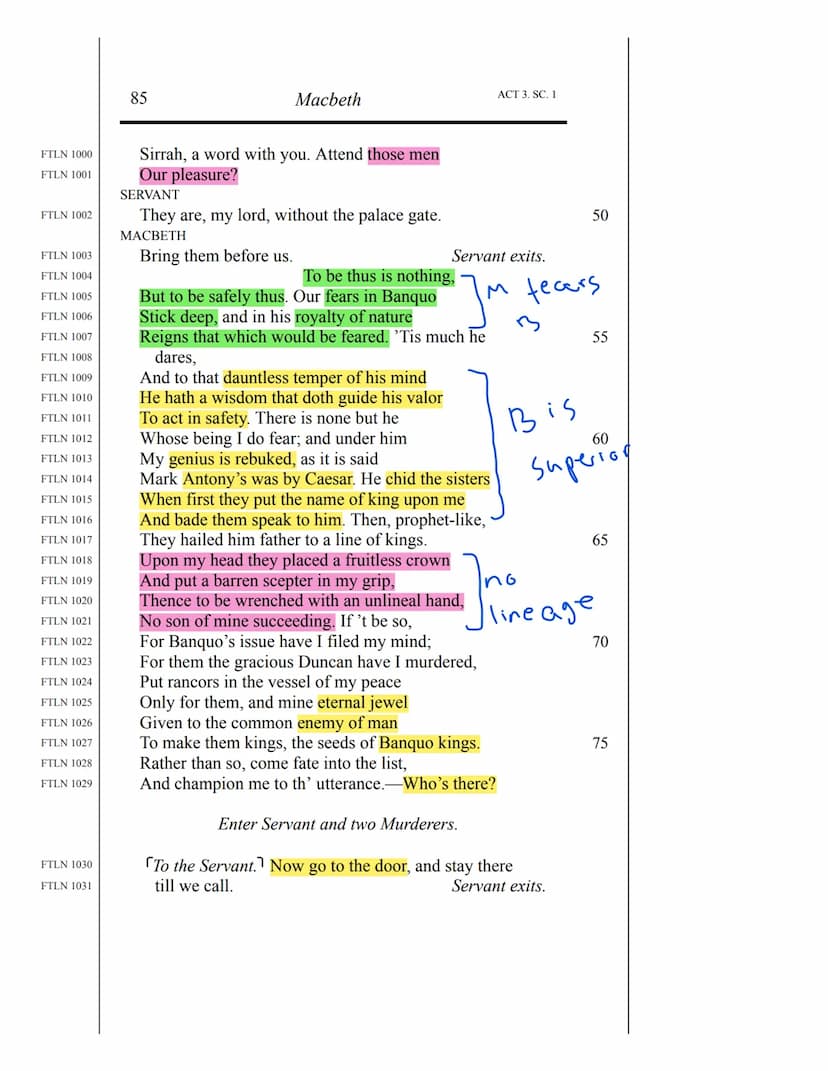 85 Macbeth ACT 3. SC. 1
FTLN 1000 Sirrah, a word with you. Attend those men
FTLN 1001 Our pleasure?
SERVANT
FTLN 1002 They are, my lord, without the palace gate. 50
MACBETH
FTLN 1003 Bring them before us. Servant exits.
FTLN 1004 To be thus is nothing,
FTLN 1005 But to be safely thus. Our fears in Banquo
FTLN 1006 Stick deep, and in his royalty of nature
M fears
B
FTLN 1007 Reigns that which would be feared. ’Tis much he 55
FTLN 1008 dares,
FTLN 1009 And to that dauntless temper of his mind
FTLN 1010 He hath a wisdom that doth guide his valor
FTLN 1011 To act in safety. There is none but he
FTLN 1012 Whose being I do fear; and under him 60
B is
superior
FTLN 1013 My genius is rebuked, as it is said
FTLN 1014 Mark Antony’s was by Caesar. He chid the sisters
FTLN 1015 When first they put the name of king upon me
FTLN 1016 And bade them speak to him. Then, prophet-like,
FTLN 1017 They hailed him father to a line of kings. 65
FTLN 1018 Upon my head they placed a fruitless crown
FTLN 1019 And put a barren scepter in my grip,
FTLN 1020 Thence to be wrenched with an unlineal hand,
no
lineage
FTLN 1021 No son of mine succeeding. If ’t be so,
FTLN 1022 For Banquo’s issue have I filed my mind; 70
FTLN 1023 For them the gracious Duncan have I murdered,
FTLN 1024 Put rancors in the vessel of my peace
FTLN 1025 Only for them, and mine eternal jewel
FTLN 1026 Given to the common enemy of man
FTLN 1027 To make them kings, the seeds of Banquo kings. 75
FTLN 1028 Rather than so, come fate into the list,
FTLN 1029 And champion me to th’ utterance.—Who’s there?
Enter Servant and two Murderers.
FTLN 1030 ⌜To the Servant.⌝ Now go to the door, and stay there
FTLN 1031 till we call. Servant exits.